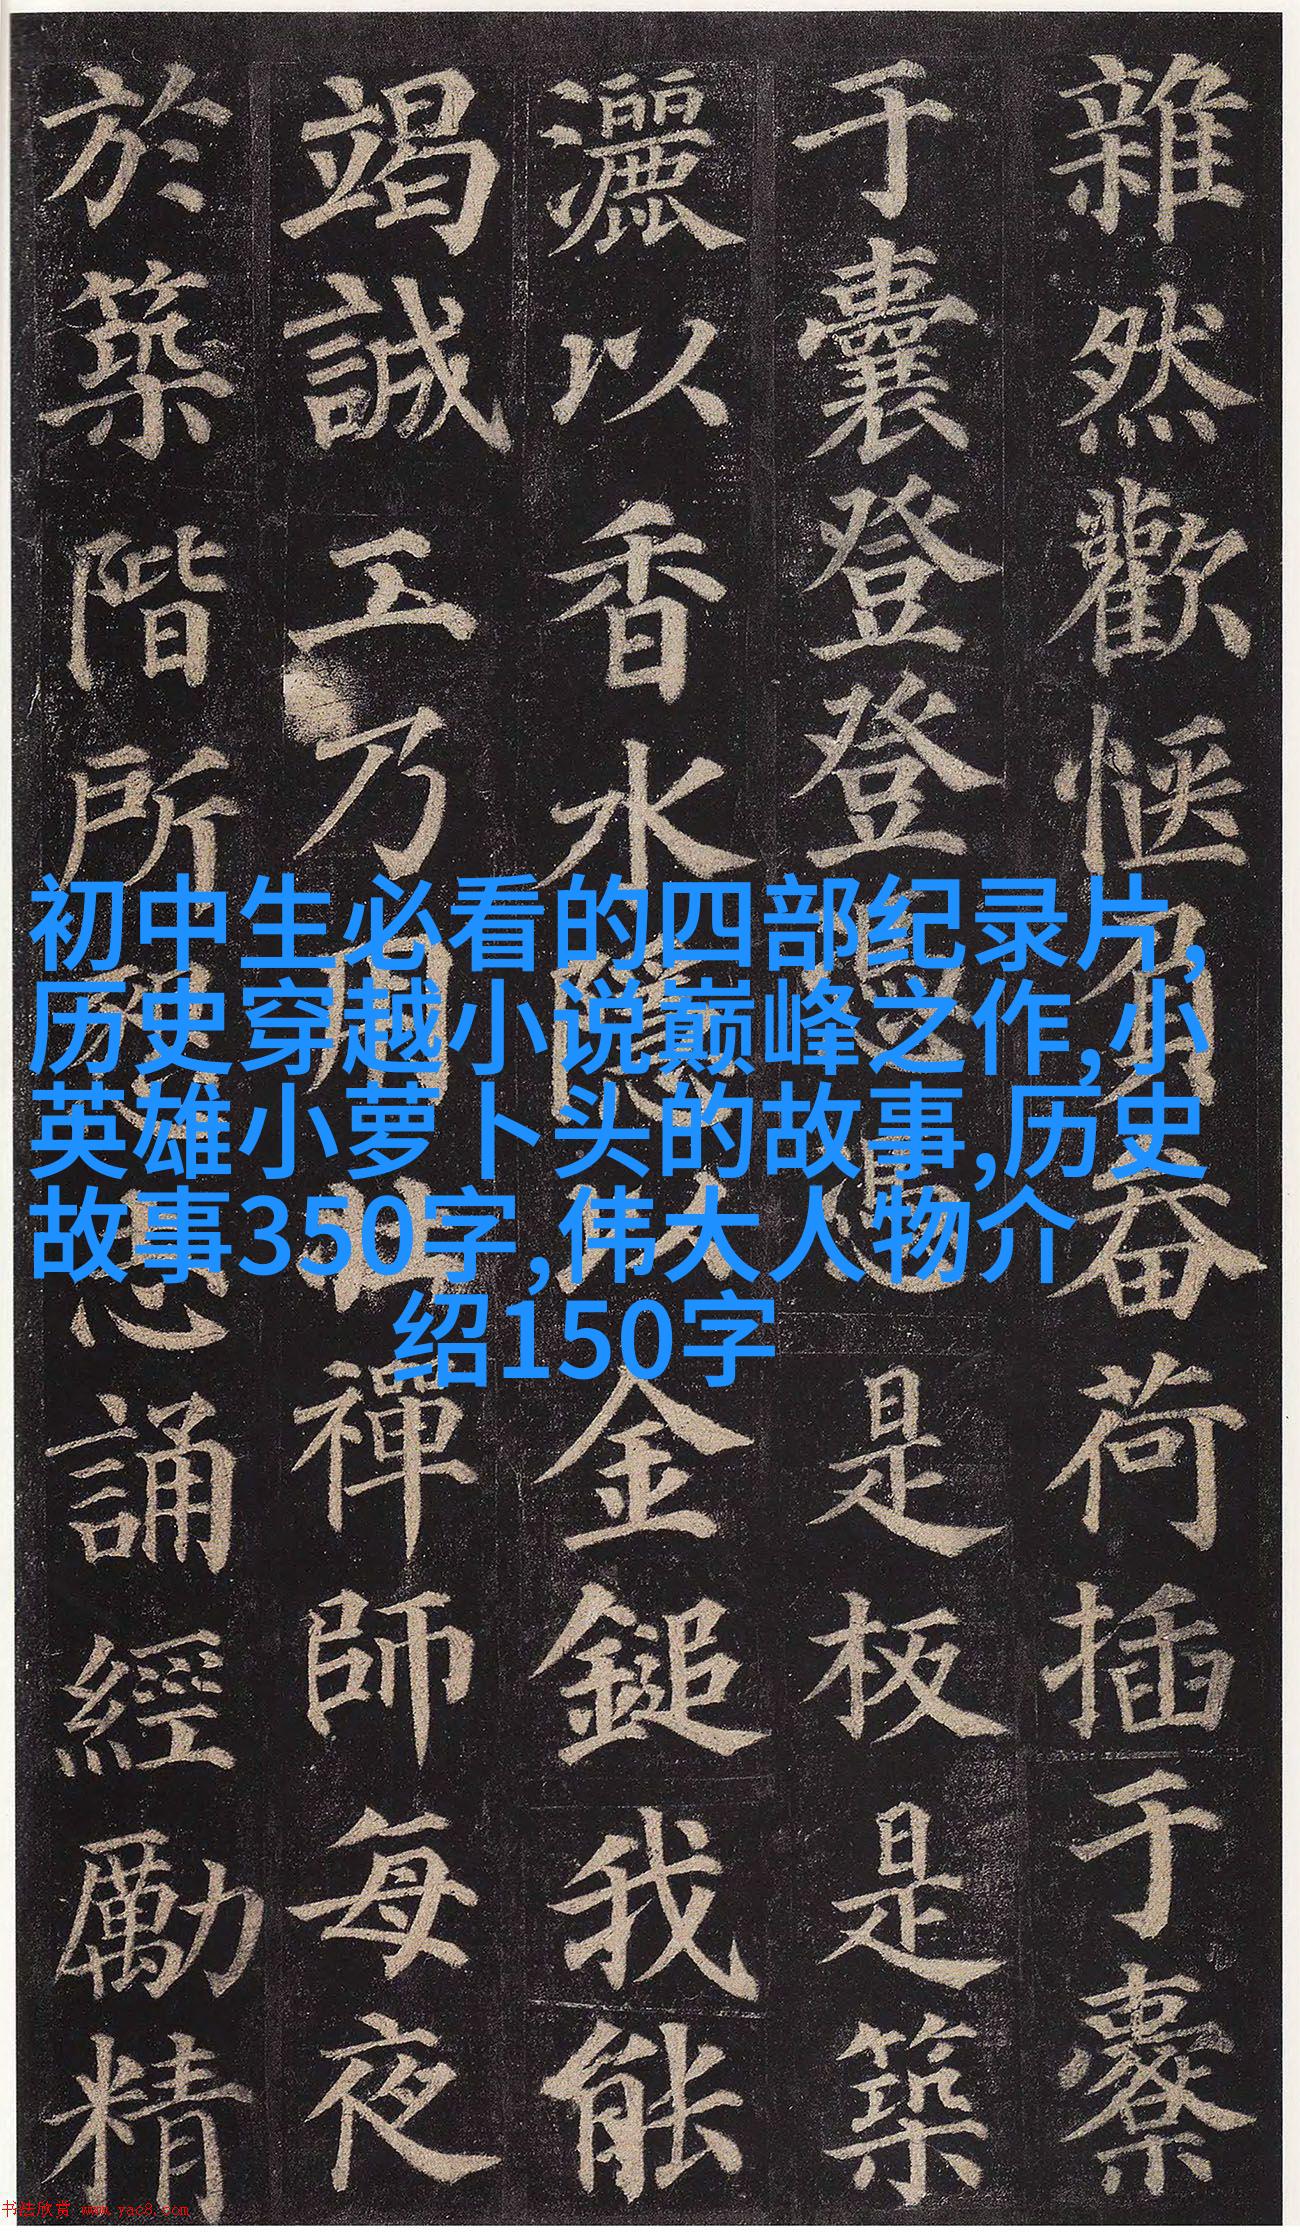 初中生必看的四部纪录片,
历史穿越小说巅峰之作,小
英雄小萝卜头的故事,历史
故事350字,伟大人物介
绍150字
雜然歡愜負畚荷插于橐
于囊登登憑憑是板是築
灑以香水隱以金鎚我能
竭誠工乃用壯禪師每夜
於築階所懇志誦經勵精
书法欣赏 www.yac8.com